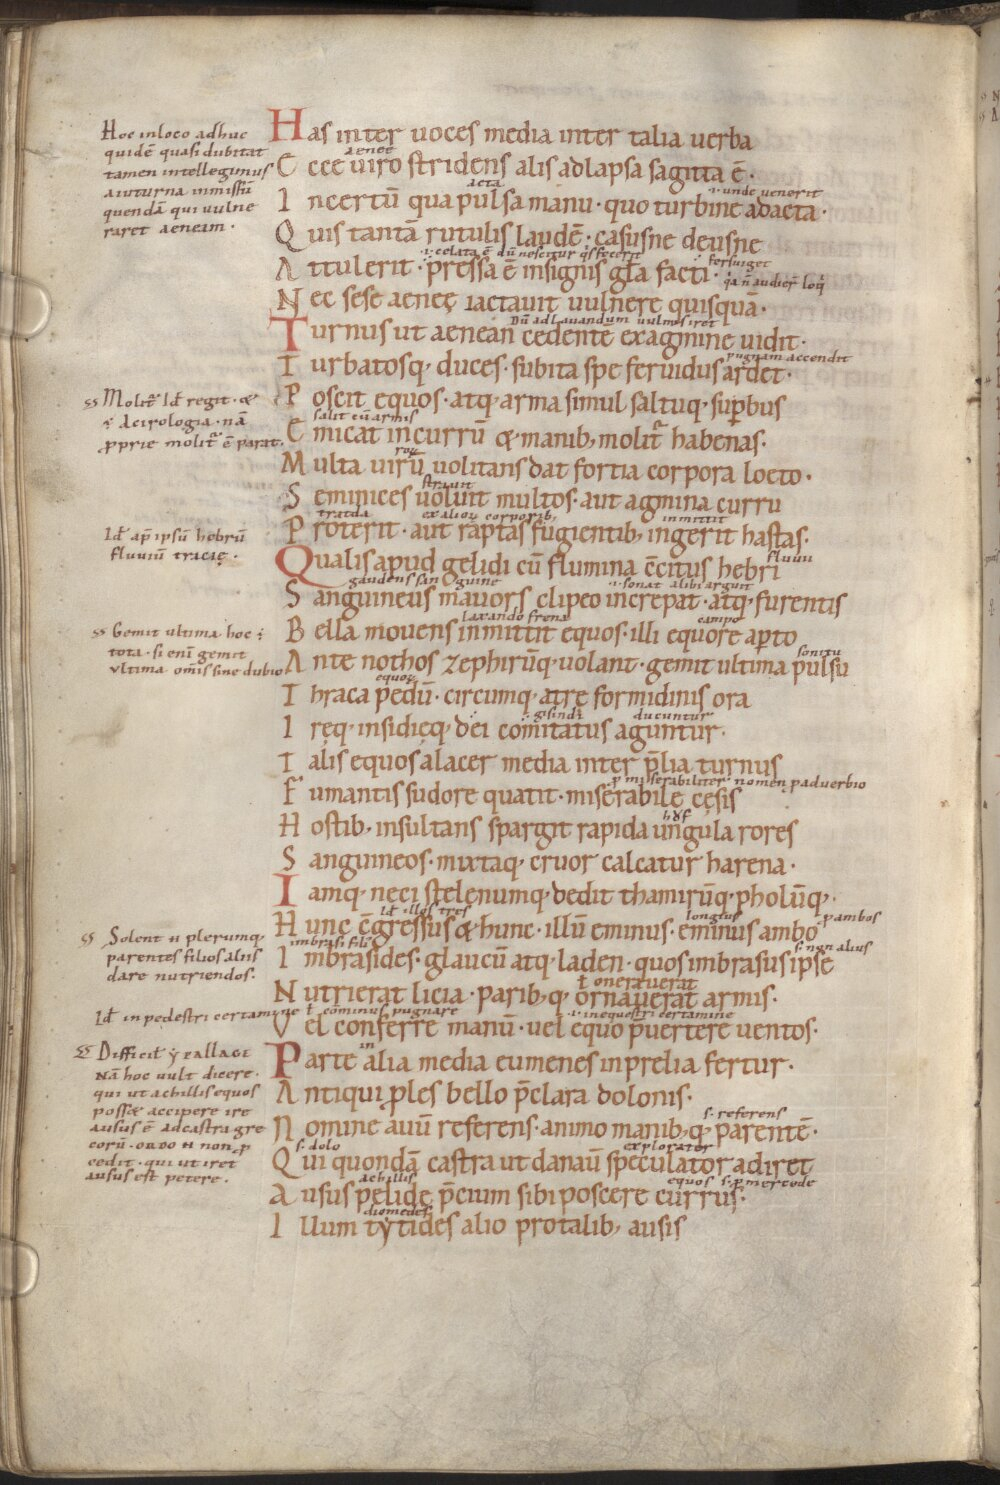 Hoc in loco adhuc
quidē quasi dubitat
tamen intellegimus
a iuturna inmissū
quendā qui uulne
raret aeneam·
Has inter uoces media inter talia uerba
aeneę
Ecce uiro stridens alis adlapsa sagitta ē·
acta
.i. unde uenerit
Incertū qua pulsa manu· quo turbine adacta·
Quis tantā rutulis laudē· casusne deusne
.i. celata ē dū nescitur q's fecerit
Attulerit· pressa ē insignis gl̄a facti·
Nec sese aeneę iactauit uulnere quisquā·
Dū ad lauandum uulnus iret
Turnus ut aenean cedentē ex agmine uidit·
pugnam accendit
Turbatosq; duces· subita spe feruidus ardet·
Poscit equos· atq; arma simul saltuq; sup̄bus
salit cū armis
Emicat in currū & manib; molit̄ habenas·
Multa uirū uolitans dat fortia corpora loeto·
strauit
Semineces uoluit multos· aut agmina curru
ex alior corporib;
inmittit
Proterit· aut raptas fugientib; ingerit hastas·
fluuii
Qualis apud gelidi cū flumina c̄citus hebri
gaudens sanguine
.i. sonat alibi arguit
Sanguineus mauors clipeo increpat· atq; furentis
laxando frena
campo
Bella mouens inmittit equos· illi equore ap̄to
sonitu
Ante nothos zephirūq; uolant· gemit ultima pulsu
equoꝝ
Thraca pedū· circumq; atre formidinis ora
ducuntur
Iręq; insidięq; dei comitatus aguntur·
Talis equos alacer media inter p̄lia turnus
p̄ miserabiliter nomen p aduerbio
Fumantis sudore quatit· miserabile cęsis
Hostib; insultans spargit rapida ungula rores
Sanguineos· mixtaq; cruor calcatur harena·
Iamq; neci stelenumq; dedit thamirūq; pholūq;·
Id' illos tres
longius
p ambos
Hunc c̄gressus & hunc· illū eminus· eminus ambo
imbrasi filii
s. non alius
Imbrasides· glaucū atq; laden· quos imbrasus ipse
ł onerauerat
Nutrierat licia· parib; q; ornauerat armis·
ł cōminus pugnare
.i. inequestri certamine
Vel conferre manū· uel equo p̄uertere uentos·
in
Parte alia media eumenes in prelia fertur·
Antiqui ꝓles bello p̄clara dolonis·
s. referens
Nomine auū referens· animo manib; q; parentē·
s. dolo
explorator
Qui quondā castra ut danaū speculator adiret
achillis
equos s. p mercede
Ausus pelidę p̄cium sibi poscere currus·
diomedes
Illum tytides alio pro talib; ausis
Molit̄ Id' regit· &
ē Acirologia· nā
ꝓprie molit̄ ē parat·
Id' ap' ipsū hebrū
fluuiū tracię·
Gemit ultima hoc ē
tota· si enī gemit
ultima om̄is sine dubio
Solent n plerumq;
parentes filios aliis
dare nutriendos·
Id' in pedestri certamine
Difficil' yrallage
Nā hoc uult dicere·
qui ut achillis equos
poss& accipere ire
ausus ē ad castra gre
corū· ordo n non p̄
cedit· qui ut iret
ausus est petere·